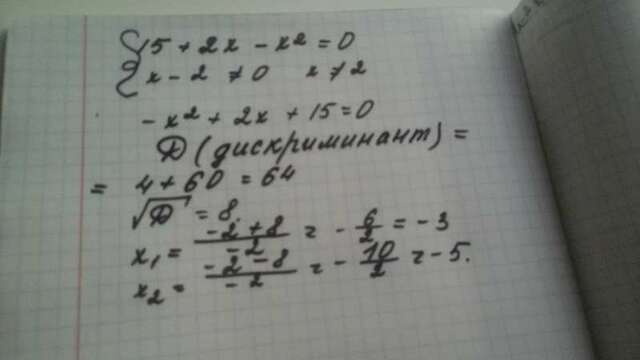 {15 + 2x - x² = 0
{x - 2 ≠ 0 x ≠ 2
- x² + 2x + 15 = 0
D (дискриминант) =
= 4 + 60 = 64
√D = 8.
x₁ = (-2 + 8)/(-2) = - 6/2 = -3
x₂ = (-2 - 8)/(-2) = - 10/2 = -5.